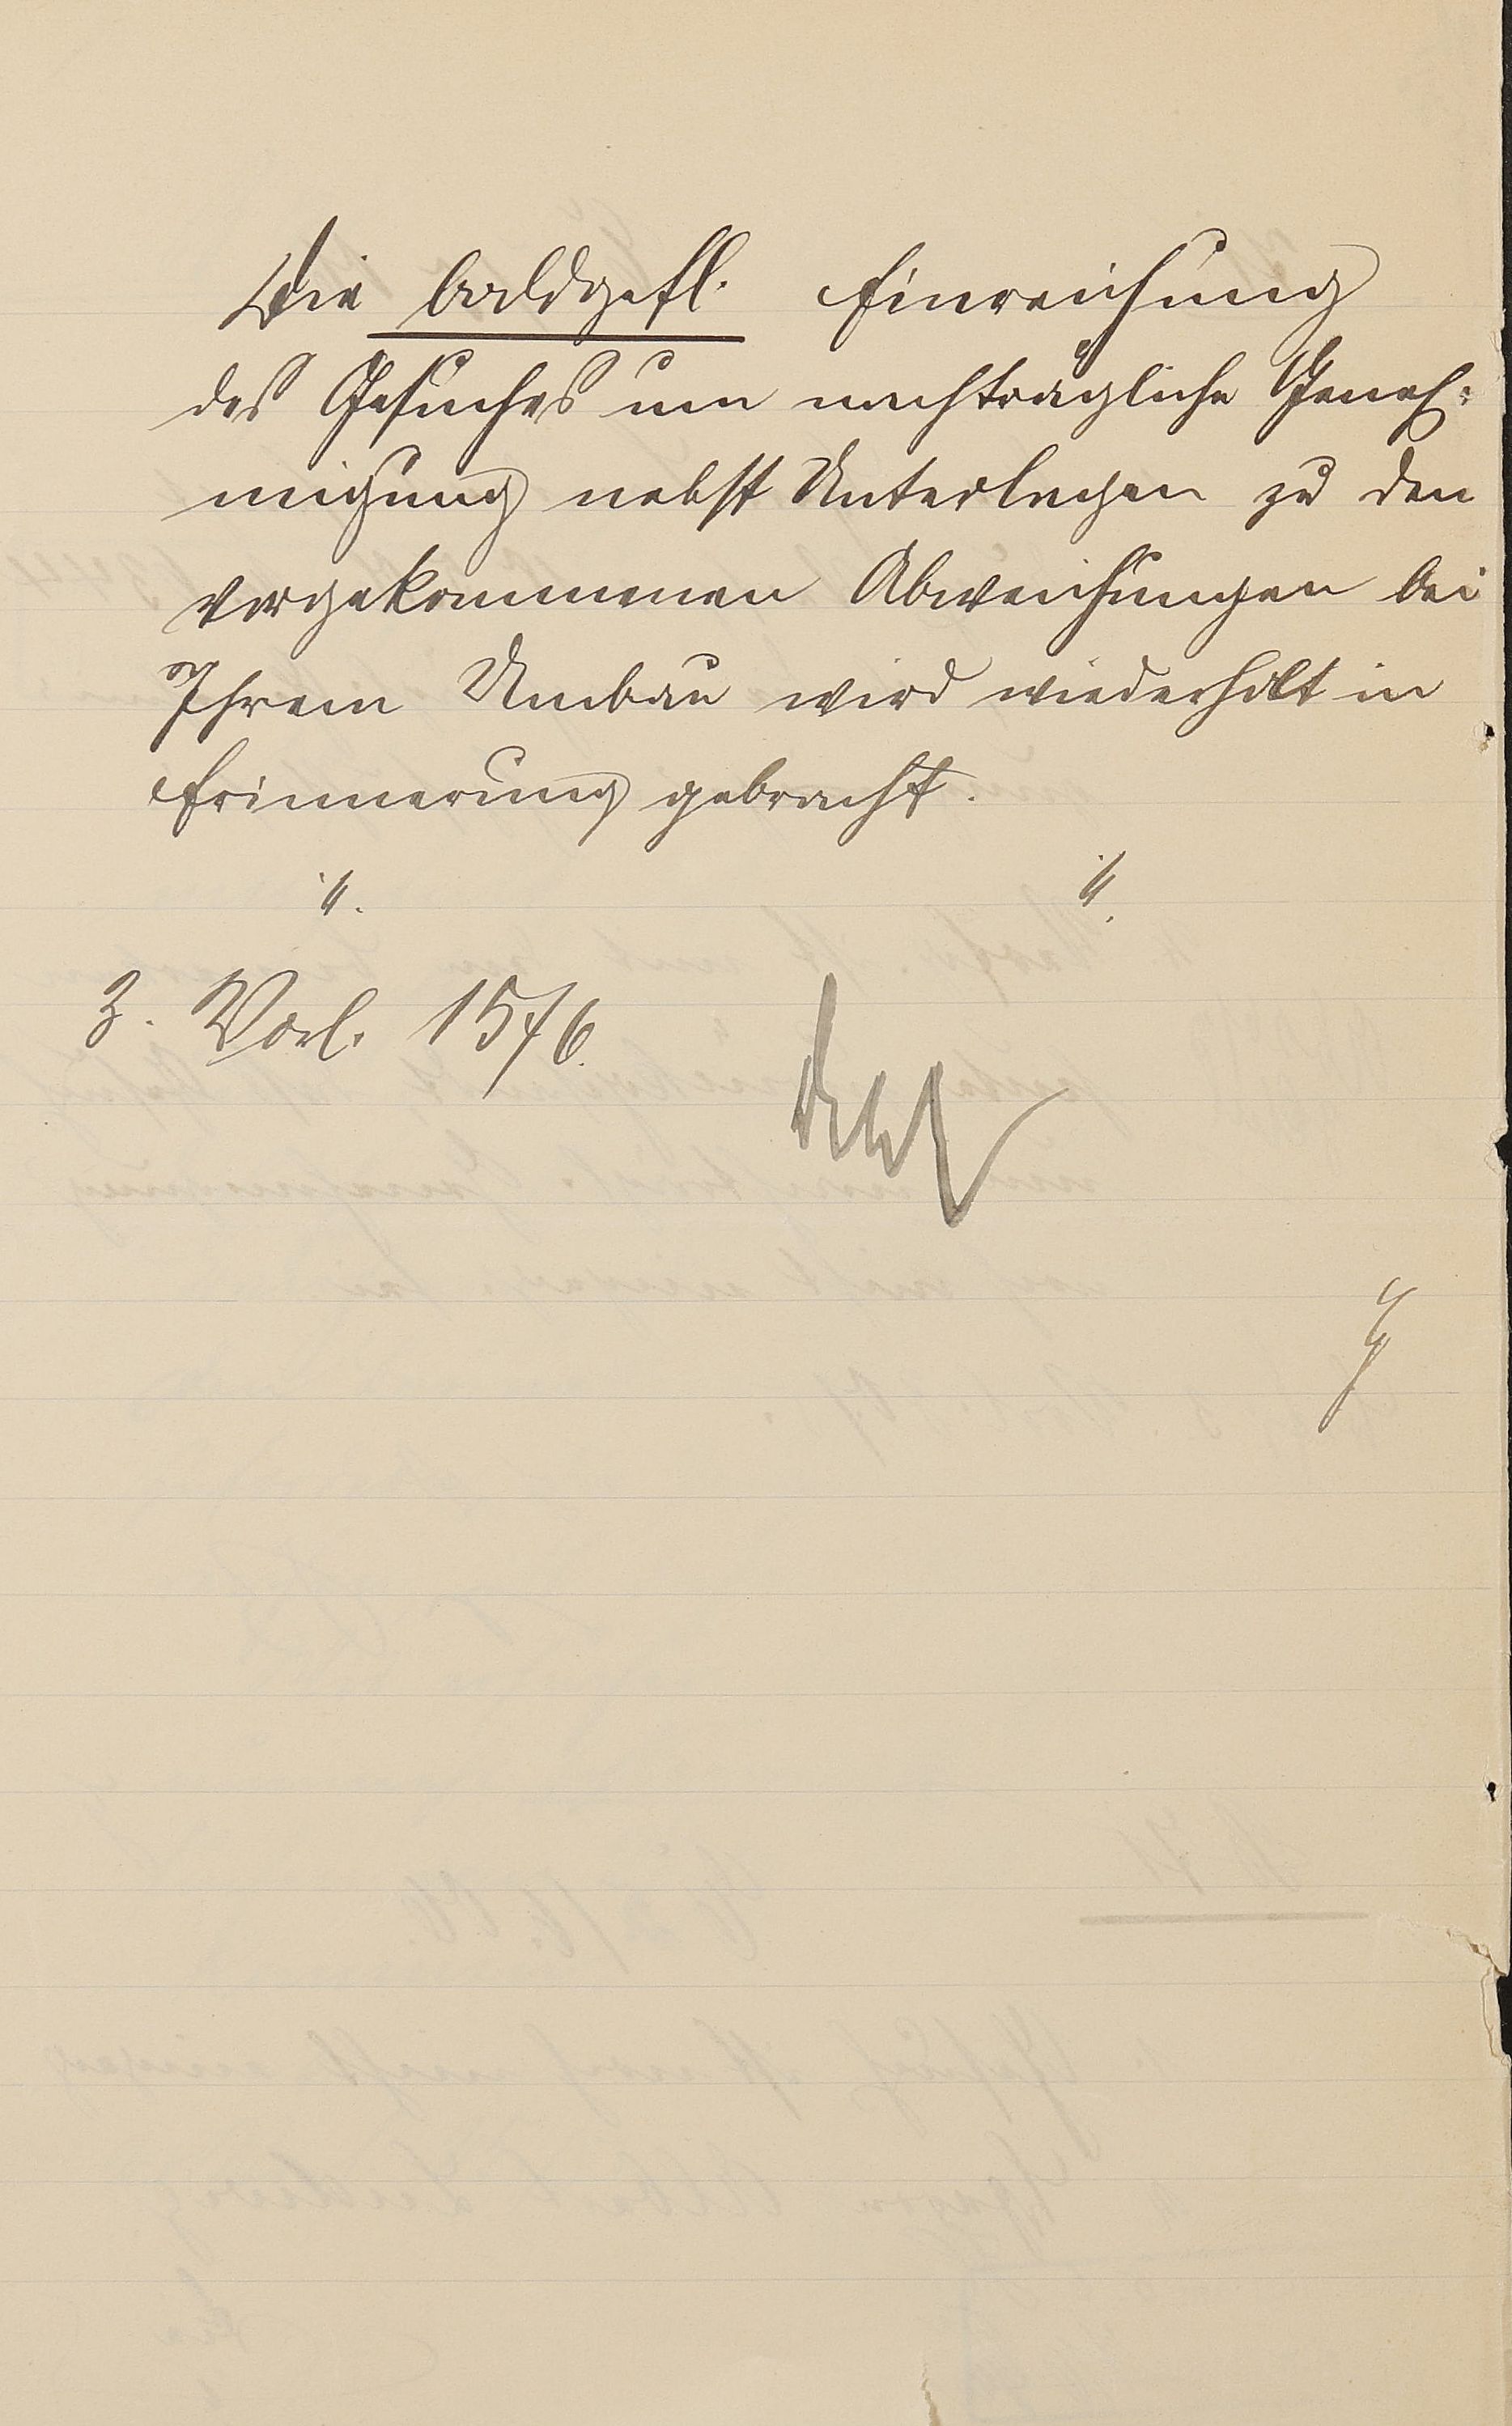 Die baldgefl. Einreichung
des Gesuches um nachträgliche Geneh-
migung nebst Unterlagen zu den
vorgekommenen Abweichungen bei
Ihrem Umbau wird wiederholt in
Erinnerung gebracht.
3. Vorl. 15/6.